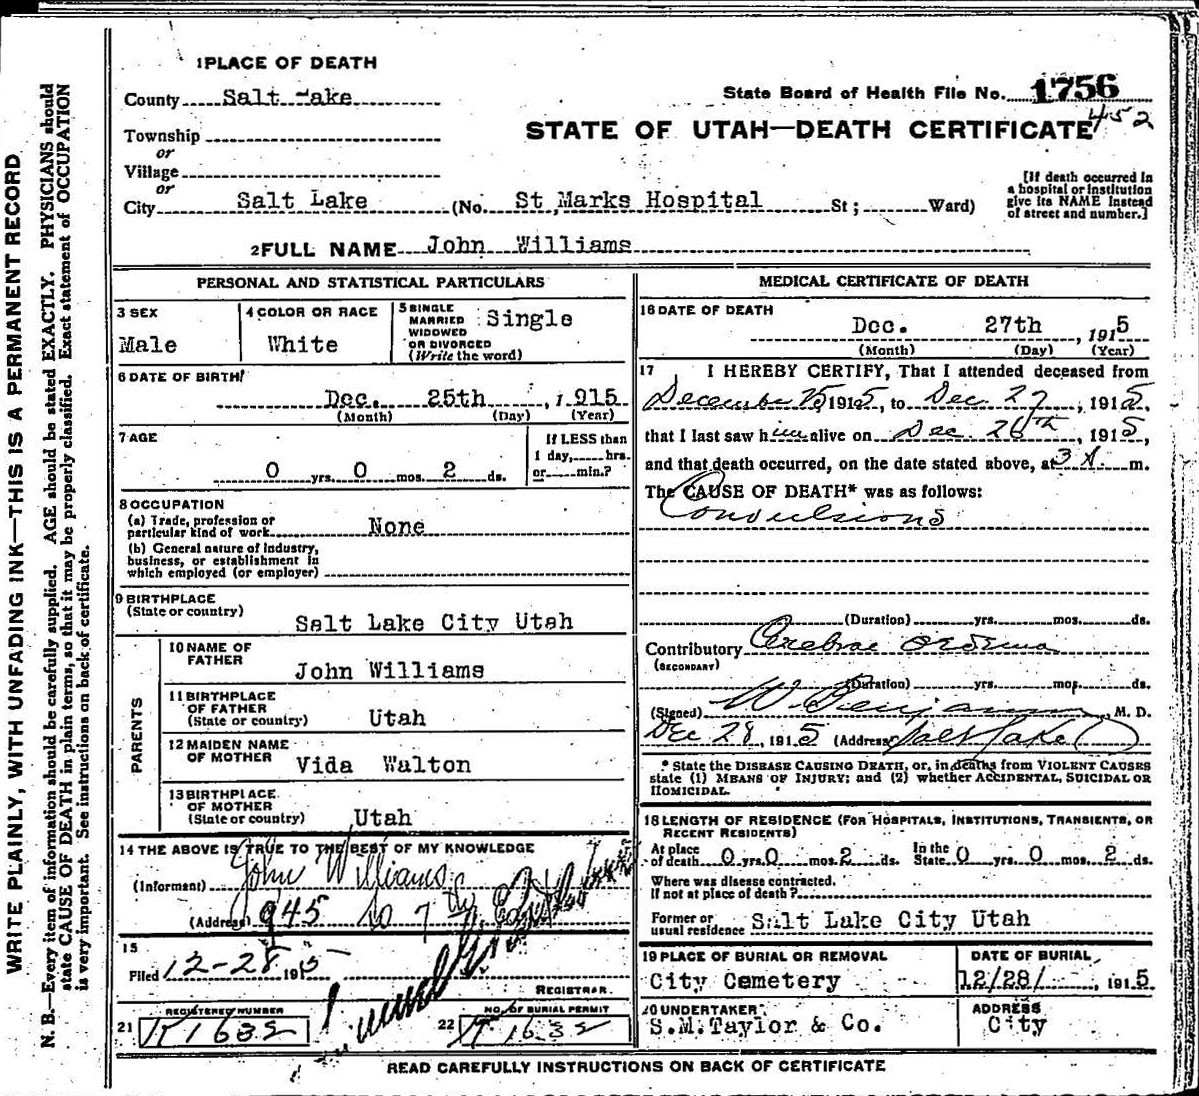 1 PLACE OF DEATH
County Salt Lake
State Board of Health File No. 1756
452
Township
STATE OF UTAH—DEATH CERTIFICATE
or
Village
or
City Salt Lake (No. St Marks Hospital St; Ward)
[If death occurred in
a hospital or institution
give its NAME instead
of street and number.]
2 FULL NAME John Williams
PERSONAL AND STATISTICAL PARTICULARS
3 SEX
Male
4 COLOR OR RACE
White
5 SINGLE
MARRIED
WIDOWED
OR DIVORCED
(Write the word)
Single
6 DATE OF BIRTH
Dec. 25th, 1915
(Month) (Day) (Year)
7 AGE
0 yrs. 0 mos. 2 ds.
If LESS than
1 day, hrs.
or min.?
8 OCCUPATION
(a) Trade, profession or
particular kind of work None
(b) General nature of industry,
business, or establishment in
which employed (or employer)
9 BIRTHPLACE
(State or country)
Salt Lake City Utah
PARENTS
10 NAME OF
FATHER
John Williams
11 BIRTHPLACE
OF FATHER
(State or country) Utah
12 MAIDEN NAME
OF MOTHER Vida Walton
13 BIRTHPLACE
OF MOTHER
(State or country) Utah
14 THE ABOVE IS TRUE TO THE BEST OF MY KNOWLEDGE
(Informant) John Williams
(Address) 945 So 7th East
15
Filed 12-28 1915
REGISTRAR.
REGISTERED NUMBER
21 K 1632
NO. OF BURIAL PERMIT
22 K 1632
MEDICAL CERTIFICATE OF DEATH
16 DATE OF DEATH
Dec. 27th, 1915
(Month) (Day) (Year)
17 I HEREBY CERTIFY, That I attended deceased from
December 25 1915, to Dec. 27, 1915,
that I last saw him alive on Dec. 26th, 1915,
and that death occurred, on the date stated above, at 3 A. m.
The CAUSE OF DEATH* was as follows:
Convulsions
(Duration) yrs. mos. ds.
Contributory Cerebral oedema
(SECONDARY)
(Duration) yrs. mos. ds.
(Signed) W Benjamin M. D.
Dec 28, 1915 (Address) Salt Lake C
* State the DISEASE CAUSING DEATH, or, in deaths from VIOLENT CAUSES
state (1) MEANS OF INJURY; and (2) whether ACCIDENTAL, SUICIDAL OR
HOMICIDAL.
18 LENGTH OF RESIDENCE (FOR HOSPITALS, INSTITUTIONS, TRANSIENTS, OR
RECENT RESIDENTS)
At place
of death 0 yrs. 0 mos. 2 ds.
In the
State 0 yrs. 0 mos. 2 ds.
Where was disease contracted.
if not at place of death?
Former or
usual residence Salt Lake City Utah
19 PLACE OF BURIAL OR REMOVAL
City Cemetery
DATE OF BURIAL
12/28/, 1915.
20 UNDERTAKER
S.M.Taylor & Co.
ADDRESS
City
READ CAREFULLY INSTRUCTIONS ON BACK OF CERTIFICATE
WRITE PLAINLY, WITH UNFADING INK—THIS IS A PERMANENT RECORD
N. B.—Every item of information should be carefully supplied. AGE should be stated EXACTLY. PHYSICIANS should
state CAUSE OF DEATH in plain terms, so that it may be properly classified. Exact statement of OCCUPATION
is very important. See instructions on back of certificate.